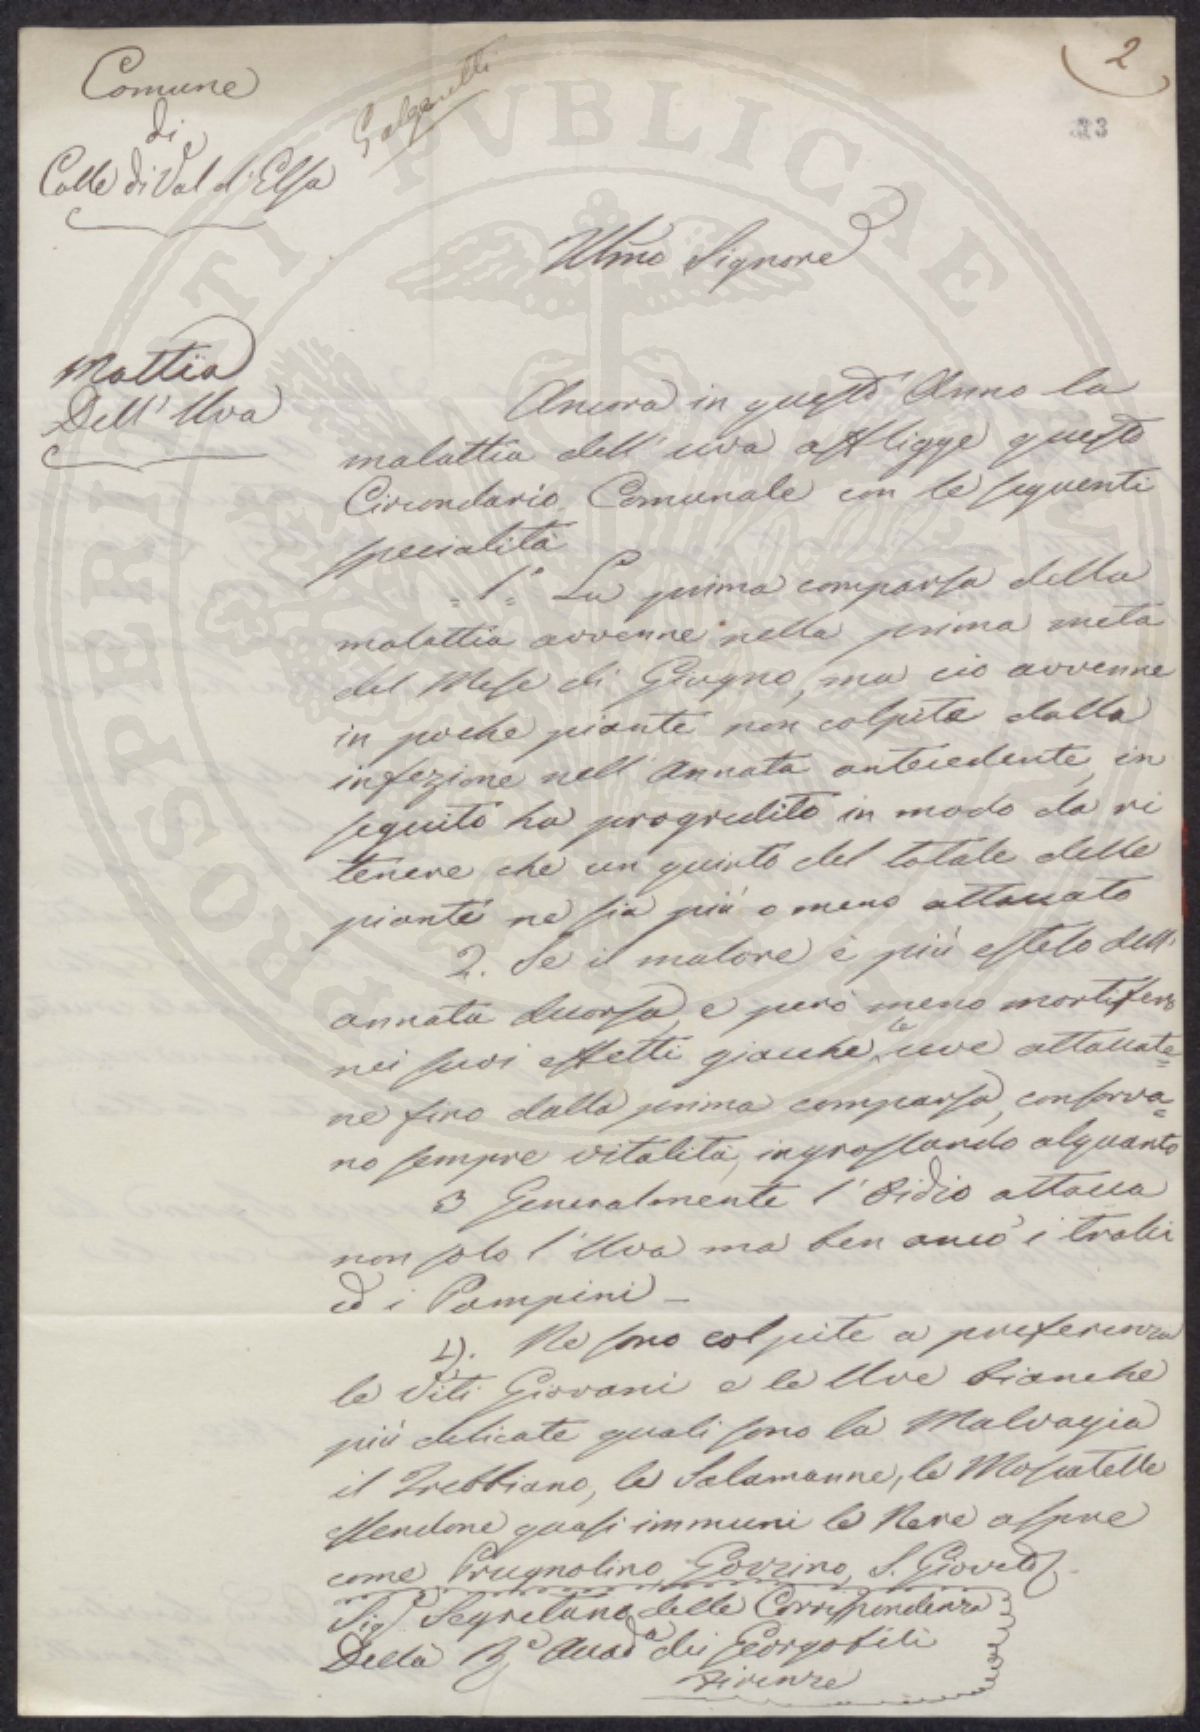 2
33
Comune
di
Colle di Val d'Elsa
Galganetti
Illmo Signore
Mattia
Dell' Uva
Ancora in questo Anno la
malattia dell' uva affligge questo
Circondario Comunale con le seguenti
specialità
1° La prima comparsa della
malattia avvenne nella prima metà
del Mese di Giugno, ma ciò avvenne
in poche piante non colpite dalla
infezione nell' Annata antecedente, in
seguito ha progredito in modo da ri
tenere che un quinto del totale delle
piante ne sia più o meno attaccato
2. Se il malore è più esteso dell'
annata decorsa, è però meno mortifero
nei suoi effetti giacchè le uve attaccate
ne fino dalla prima comparsa, conserva=
no sempre vitalità, ingrossando alquanto
3 Generalmente l' Oidio attacca
non solo l' Uva ma ben anco i tralci
ed i Pampini _
4). Ne sono colpite a preferenza
le Viti Giovani e le Uve bianche
più delicate quali sono la Malvagia
il Trebbiano, le Salamanne, le Moscatelle
essendone quasi immuni le Nere aspre
come Prugnolino, Gorzino, S. Gioveto
Sig.r Segretario delle Corrispondenza
Della R.e Accad.a dei Georgofili
Firenze
PROSPERITATI PUBLICAE AUGENDAE